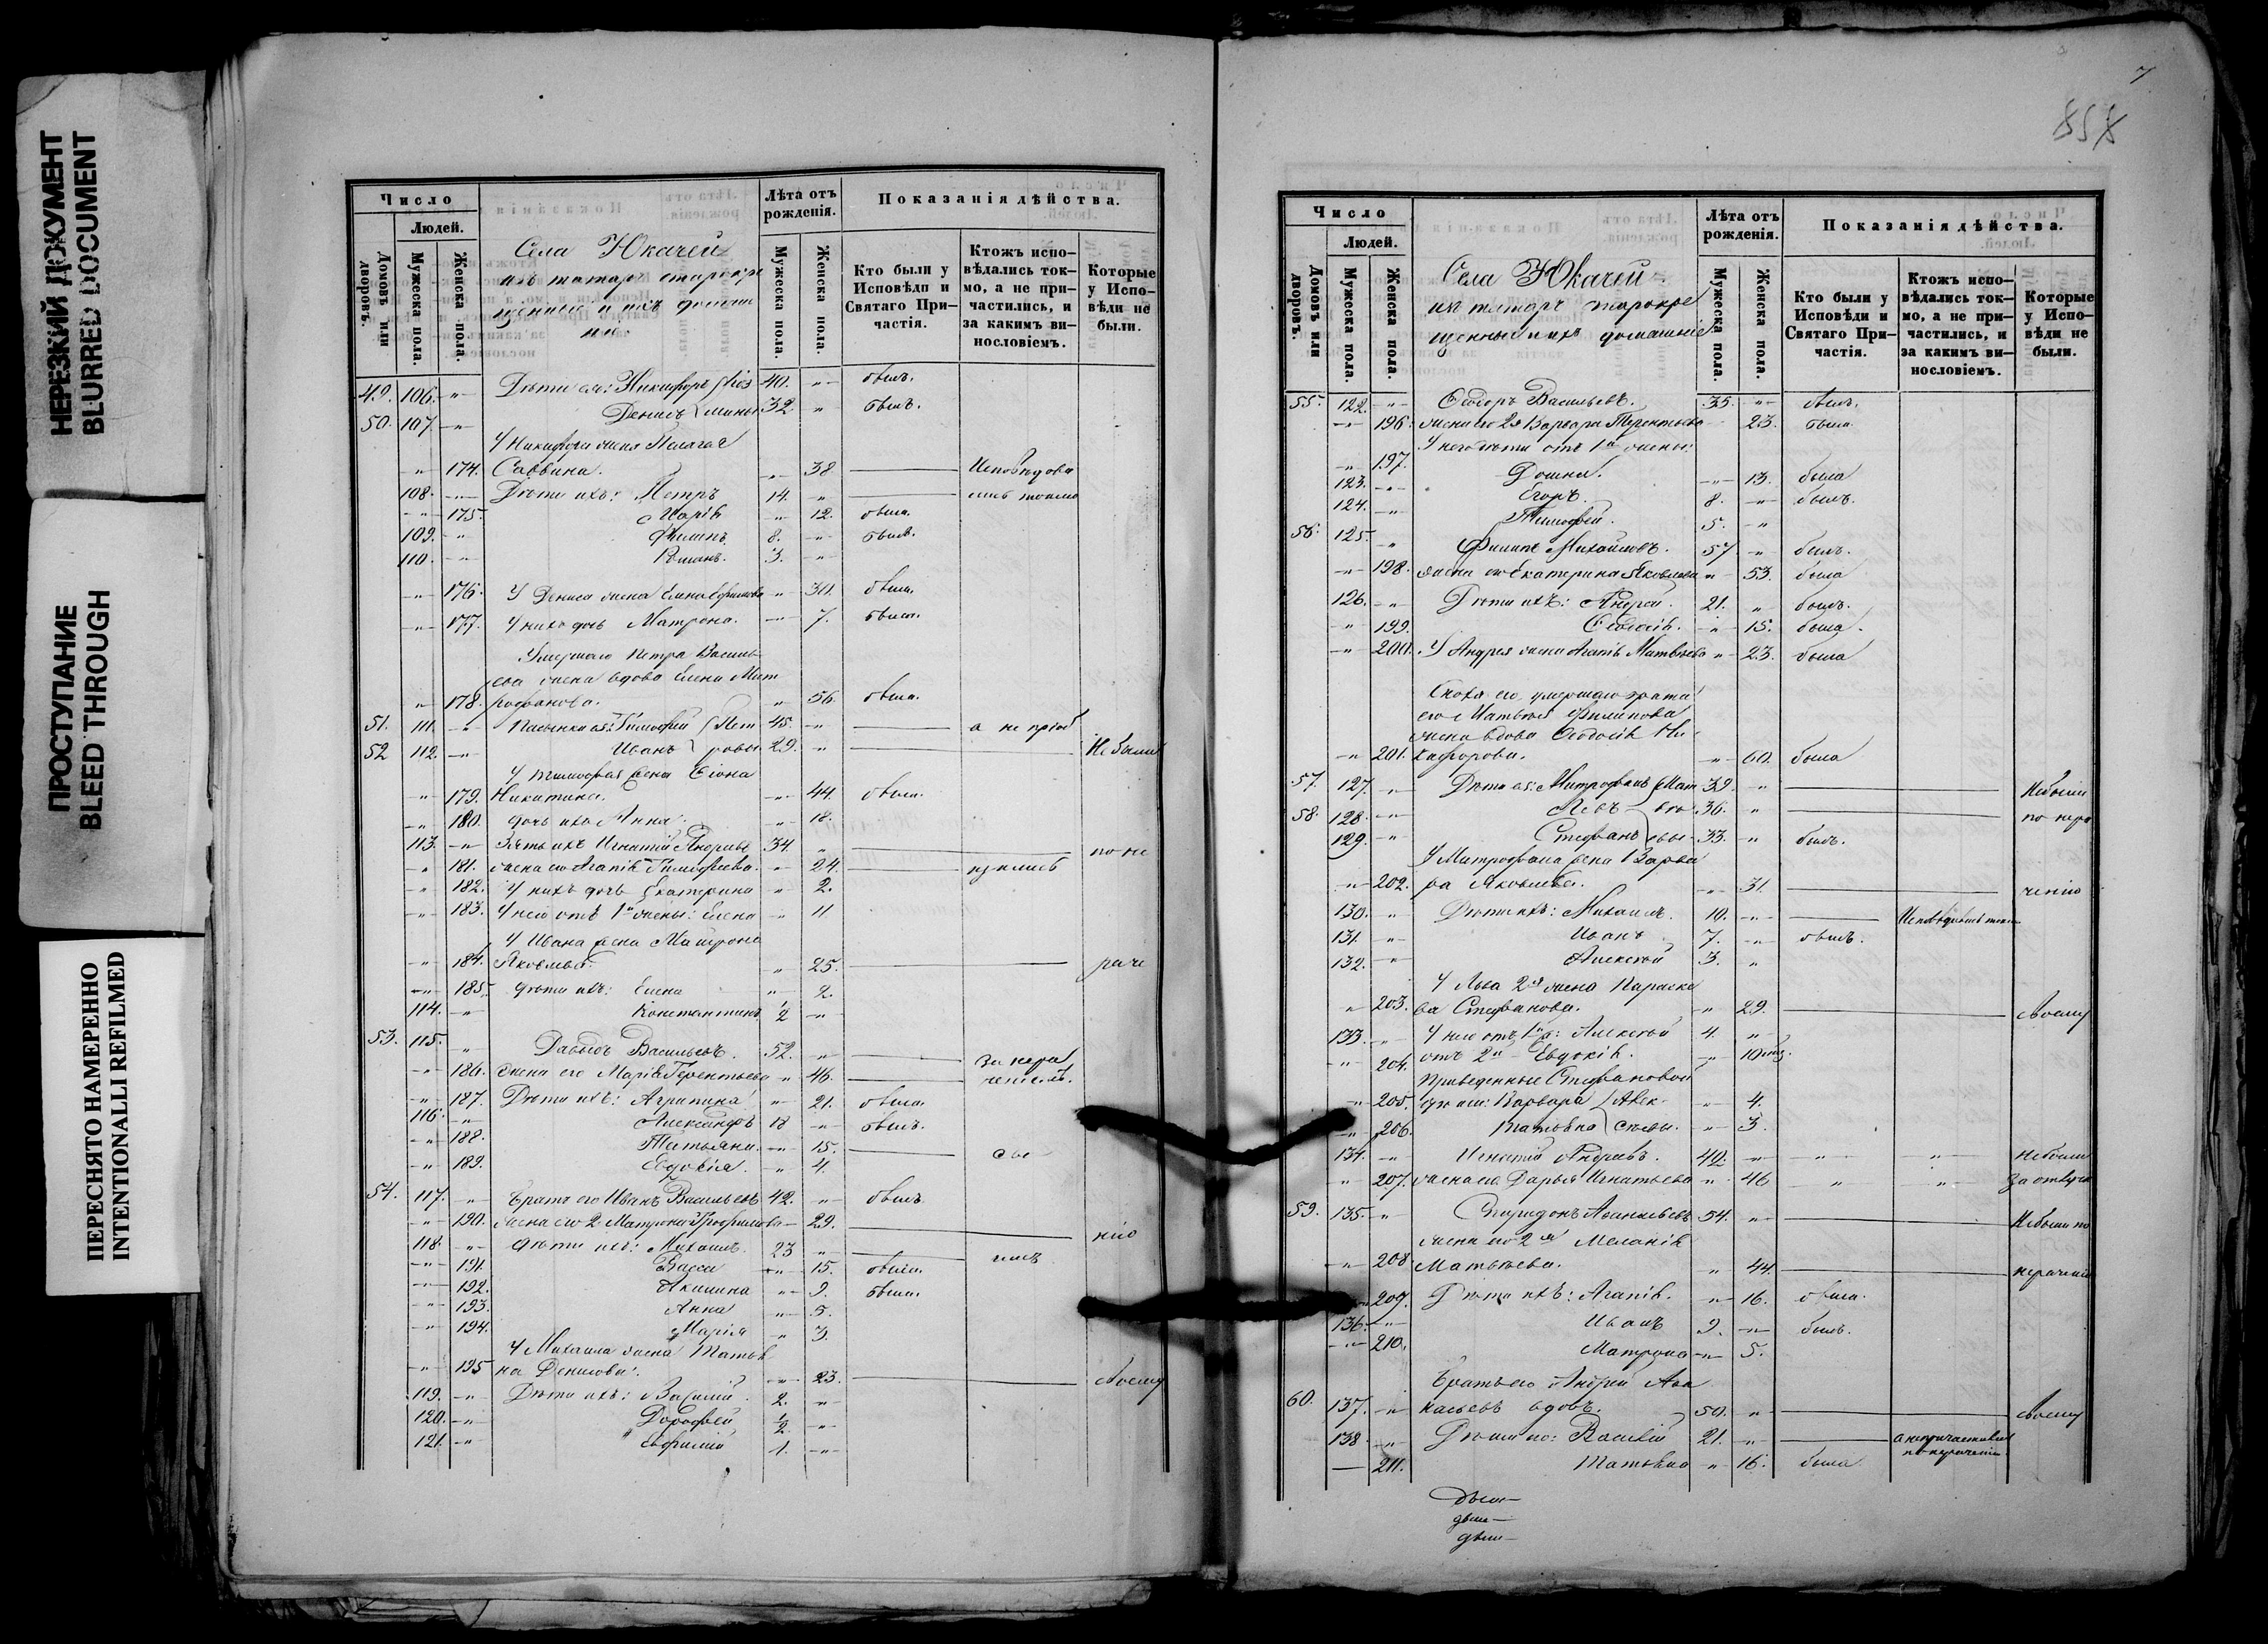 НЕРЕЗКИЙ ДОКУМЕНТ
BLURRED DOCUMENT
ПРОСТУПАНИЕ
BLEED THROUGH
ПЕРЕСНЯТО НАМЕРЕННО
INTENTIONALLI REFILMED
Число
Людей.
Домовъ или дворовъ.
Мужеска пола.
Женска пола.
Села Юкачей
изъ татаръ старокре
щенные и ихъ домаш
ніе
Лѣта отъ рожденія.
Мужеска пола.
Женска пола.
Показанія дѣйства.
Кто были у Исповѣди и Святаго При-частія.
Ктожъ испо-вѣдались ток-мо, а не при-частились, и за какимъ ви-нословіемъ.
Которые у Испо-вѣди не были.
49. 106. " Дѣти ея: Никифоръ 40. " былъ.
50. 107. " Денисъ 32 " былъ.
У Никифора жена Пелагея
" 174. Саввина. " 38 Исповѣдова
108. " Дѣти ихъ: Петръ 14. " лись токмо
" 175. Марія " 12. была.
109. " Филипъ 8. " былъ.
110. " Романъ. 3. "
" 176. У Дениса жена Елена Ефимова " 30. была.
" 177. У нихъ дочь Матрона. " 7. была.
Умершаго Петра Василь
ева жена вдова Елена Мит
" 178. рофанова. " 56. была.
51. 111. " Пасынки ея: Тимофей Пет 45. " а не приоб
52 112. " Иванъ ровы 29. " Не были
У Тимофея жена
" 179. Никитина. " 44. была.
" 180. дочь ихъ Анна. " 18.
113. " Зять ихъ Игнатій Андреевъ 34. " по не
" 181. жена его Агапія Тимофеева. " 24. щились
" 182. У нихъ дочь Екатерина " 2.
" 183. У него отъ 1й жены: Елена " 11
У Ивана жена Матрона
" 184. Яковлева. " 25. раче
" 185. дѣти ихъ: Елена " 2.
114. " Константинъ 1/2 "
53. 115. " Давыдъ Васильевъ. 52. " за нера
" 186. жена его Марія Терентьева " 46. ченіемъ.
" 187. Дѣти ихъ: Агрипина " 21. была.
116. " Александръ 18 " былъ.
" 188. Татьяна. " 15. сво
" 189. Евдокія. " 4.
54. 117. " Братъ его Иванъ Васильевъ 42. " былъ
" 190. жена его 2я Матрона Трофимова 29. нію
118. " дѣти ихъ: Михаилъ. 23 " имъ
" 191. Васса " 15. была.
" 192. Акилина " 9. была.
" 193. Анна " 5.
" 194. Марія " 3.
У Михаила жена Татья
" 195 на Денисова. " 23. своему
119. " Дѣти ихъ: Василій. 2. "
120. " Дорофей 1/2 "
121. " Ефимій 1. "
7
858
Число
Людей.
Домовъ или дворовъ.
Мужеска пола.
Женска пола.
Села Юкачей
изъ татаръ старокре
щенные и ихъ домашніе
Лѣта отъ рожденія.
Мужеска пола.
Женска пола.
Показанія дѣйства.
Кто были у Исповѣди и Святаго При-частія.
Ктожъ испо-вѣдались ток-мо, а не при-частились, и за какимъ ви-нословіемъ.
Которые у Испо-вѣди не были.
55. 122. " Ѳедоръ Васильевъ. 35. " былъ.
" 196. жена его 2я Варвара Терентьева 23. была
У него дѣти отъ 1й жены:
" 197. Домна. " 13. была
123. " Егоръ. 8. " былъ.
124. " Тимофей. 5. "
56. 125. " Филипъ Михайловъ. 57 " былъ.
" 198. жена его Екатерина Яковлева " 53. была
126. " Дѣти ихъ: Андрей. 21. " былъ.
" 199. Ѳеодосія. " 15. была.
" 200. У Андрея жена Агапія Матвѣева " 23. была
Сноха его умершаго брата
его Матвѣя Филипова
жена вдова Ѳеодосія Ни
" 201. кифорова. " 60. была
57. 127. " Дѣти ея: Митрофанъ Мат 39. " Не были
58. 128. " Левъ вѣ 36. " по нера
129. " Стефанъ евы 33. " былъ.
У Митрофана жена Варва
" 202. ра Яковлева. " 31. ченію
130. " Дѣти ихъ: Михаилъ. 10. " Исповѣдались токмо
131. " Иванъ 7. " былъ.
132. " Алексѣй 3. "
У Льва 2я жена Параске
" 203. ва Стефанова. " 29. своему
133. " У него отъ 1й: Алексѣй 4. "
" 204. отъ 2й Евдокія. " 10 мѣс.
Приведенные Стефановой
" 205. дѣти: Варвара Алек " 4.
" 206. Татьяна сѣевы. " 3.
134. " Игнатій Андреевъ. 42. " " " Не были
" 207. жена его Дарья Игнатьева " 46 " " за отлуч
59. 135. " Спиридонъ Аѳанасьевъ 54. " Не были по
жена его 2я Меланія
" 208 Матвѣева. " 44. нерачению
" 209. Дѣти ихъ: Агапія. " 16. была.
136. " Иванъ 9. " былъ.
" 210. Матрона " 5.
Братъ его Андрей Аѳа
60. 137. " насьевъ вдовъ. 50. " своему
138. " Дѣти его: Василій 21. " а не причастился по нерачению
211. Татьяна " 16. была